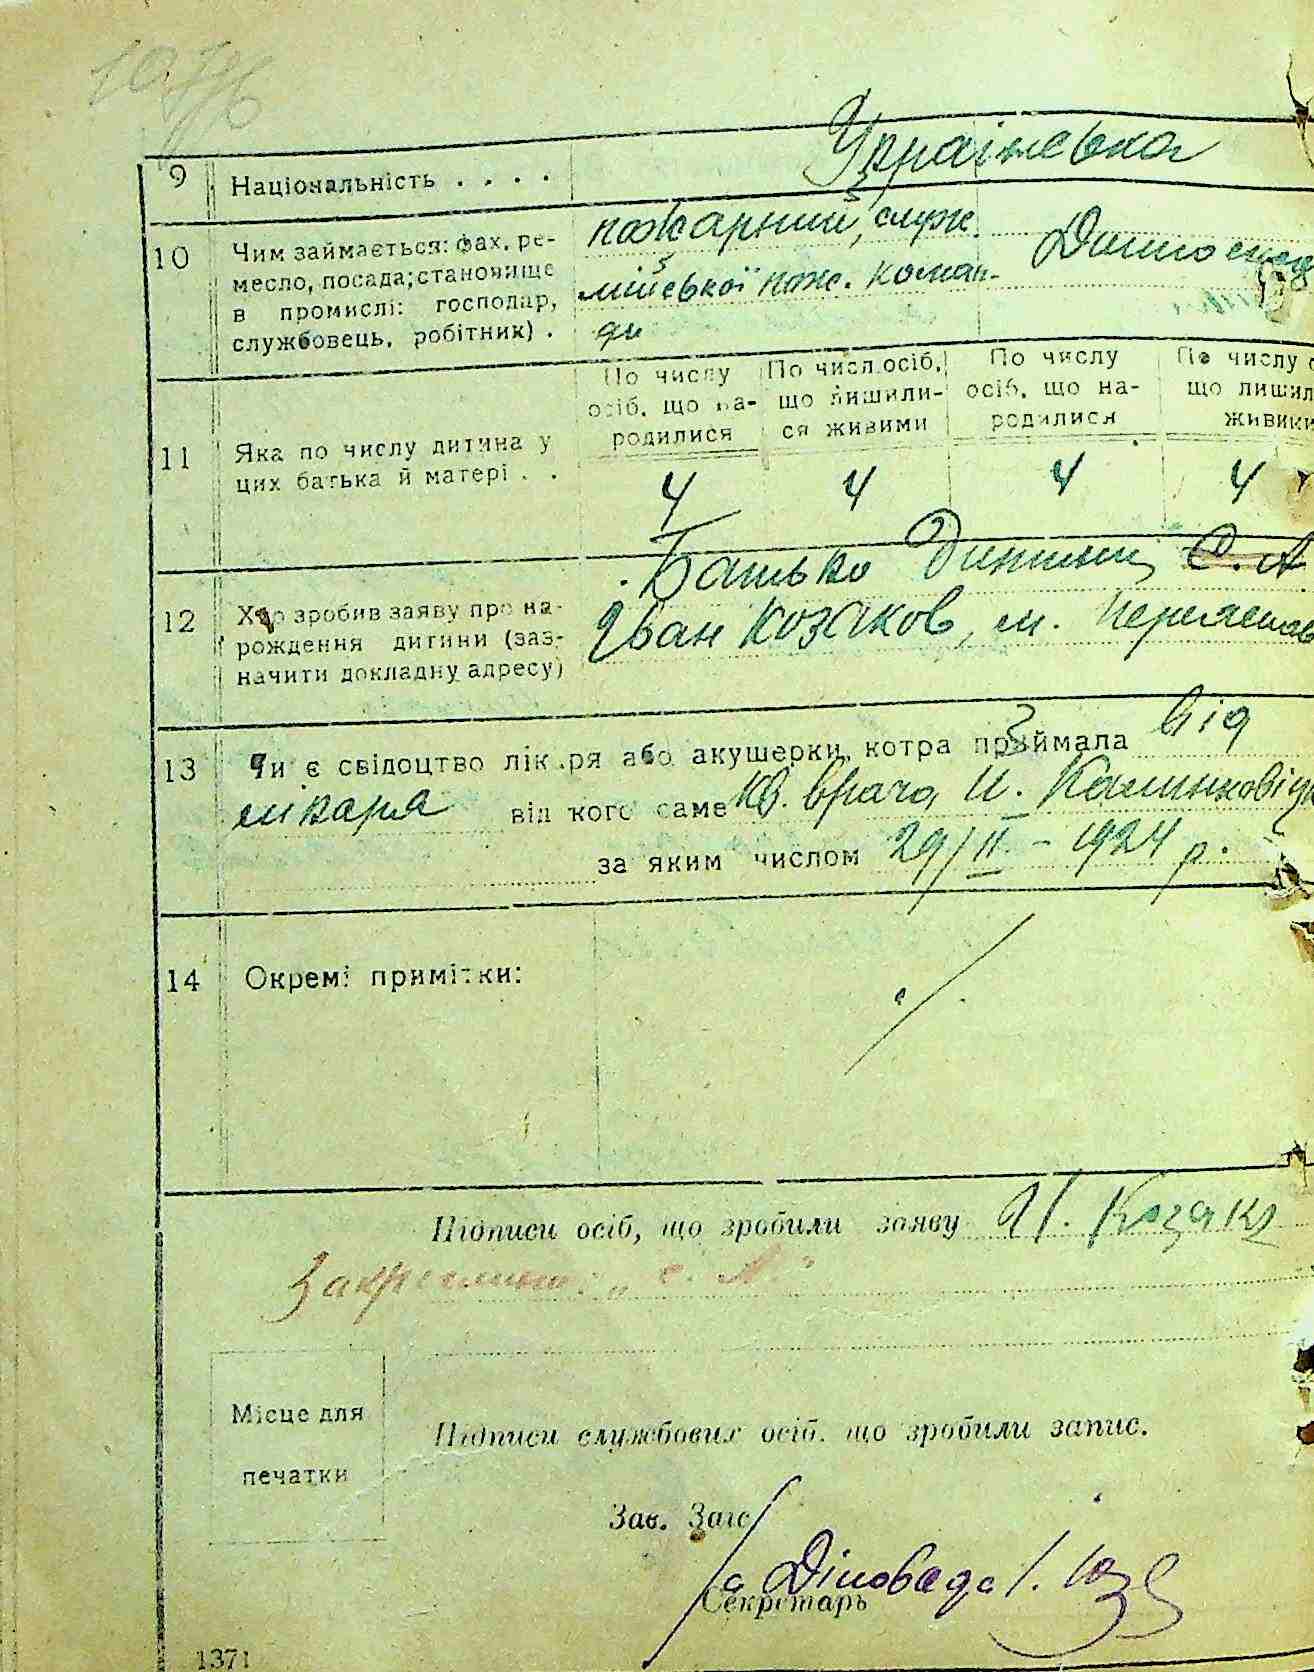 9 Національність . . . . Українська
10 Чим займається: фах, ре-
месло, посада; становище
в промислі: господар,
службовець, робітник) .
пожарний, служ.
міської пож. коман-
ди
Домо
11 Яка по числу дитина у
цих батька й матері . .
По числу
осіб, що на-
родилися
По числ. осіб,
що лишили-
ся живими
По числу
осіб, що на-
родилися
По числу
що лишил
живими
4 4 4 4
12 Хто зробив заяву про на-
рождення дитини (заз-
начити докладну адресу)
Батько дитини С. А
Іван Козаков, м.
13 Чи є свідоцтво лікаря або акушерки, котра приймала від
лікаря від кого саме врача И.
за яким числом 29/II - 1924 р.
14 Окремі примітки:
Підписи осіб, що зробили заяву И. Козак
Закреслено: „С. А."
Місце для
печатки
Підписи службових осіб, що зробили запис.
Зав. Загс
Діловода
Секретарь
1371